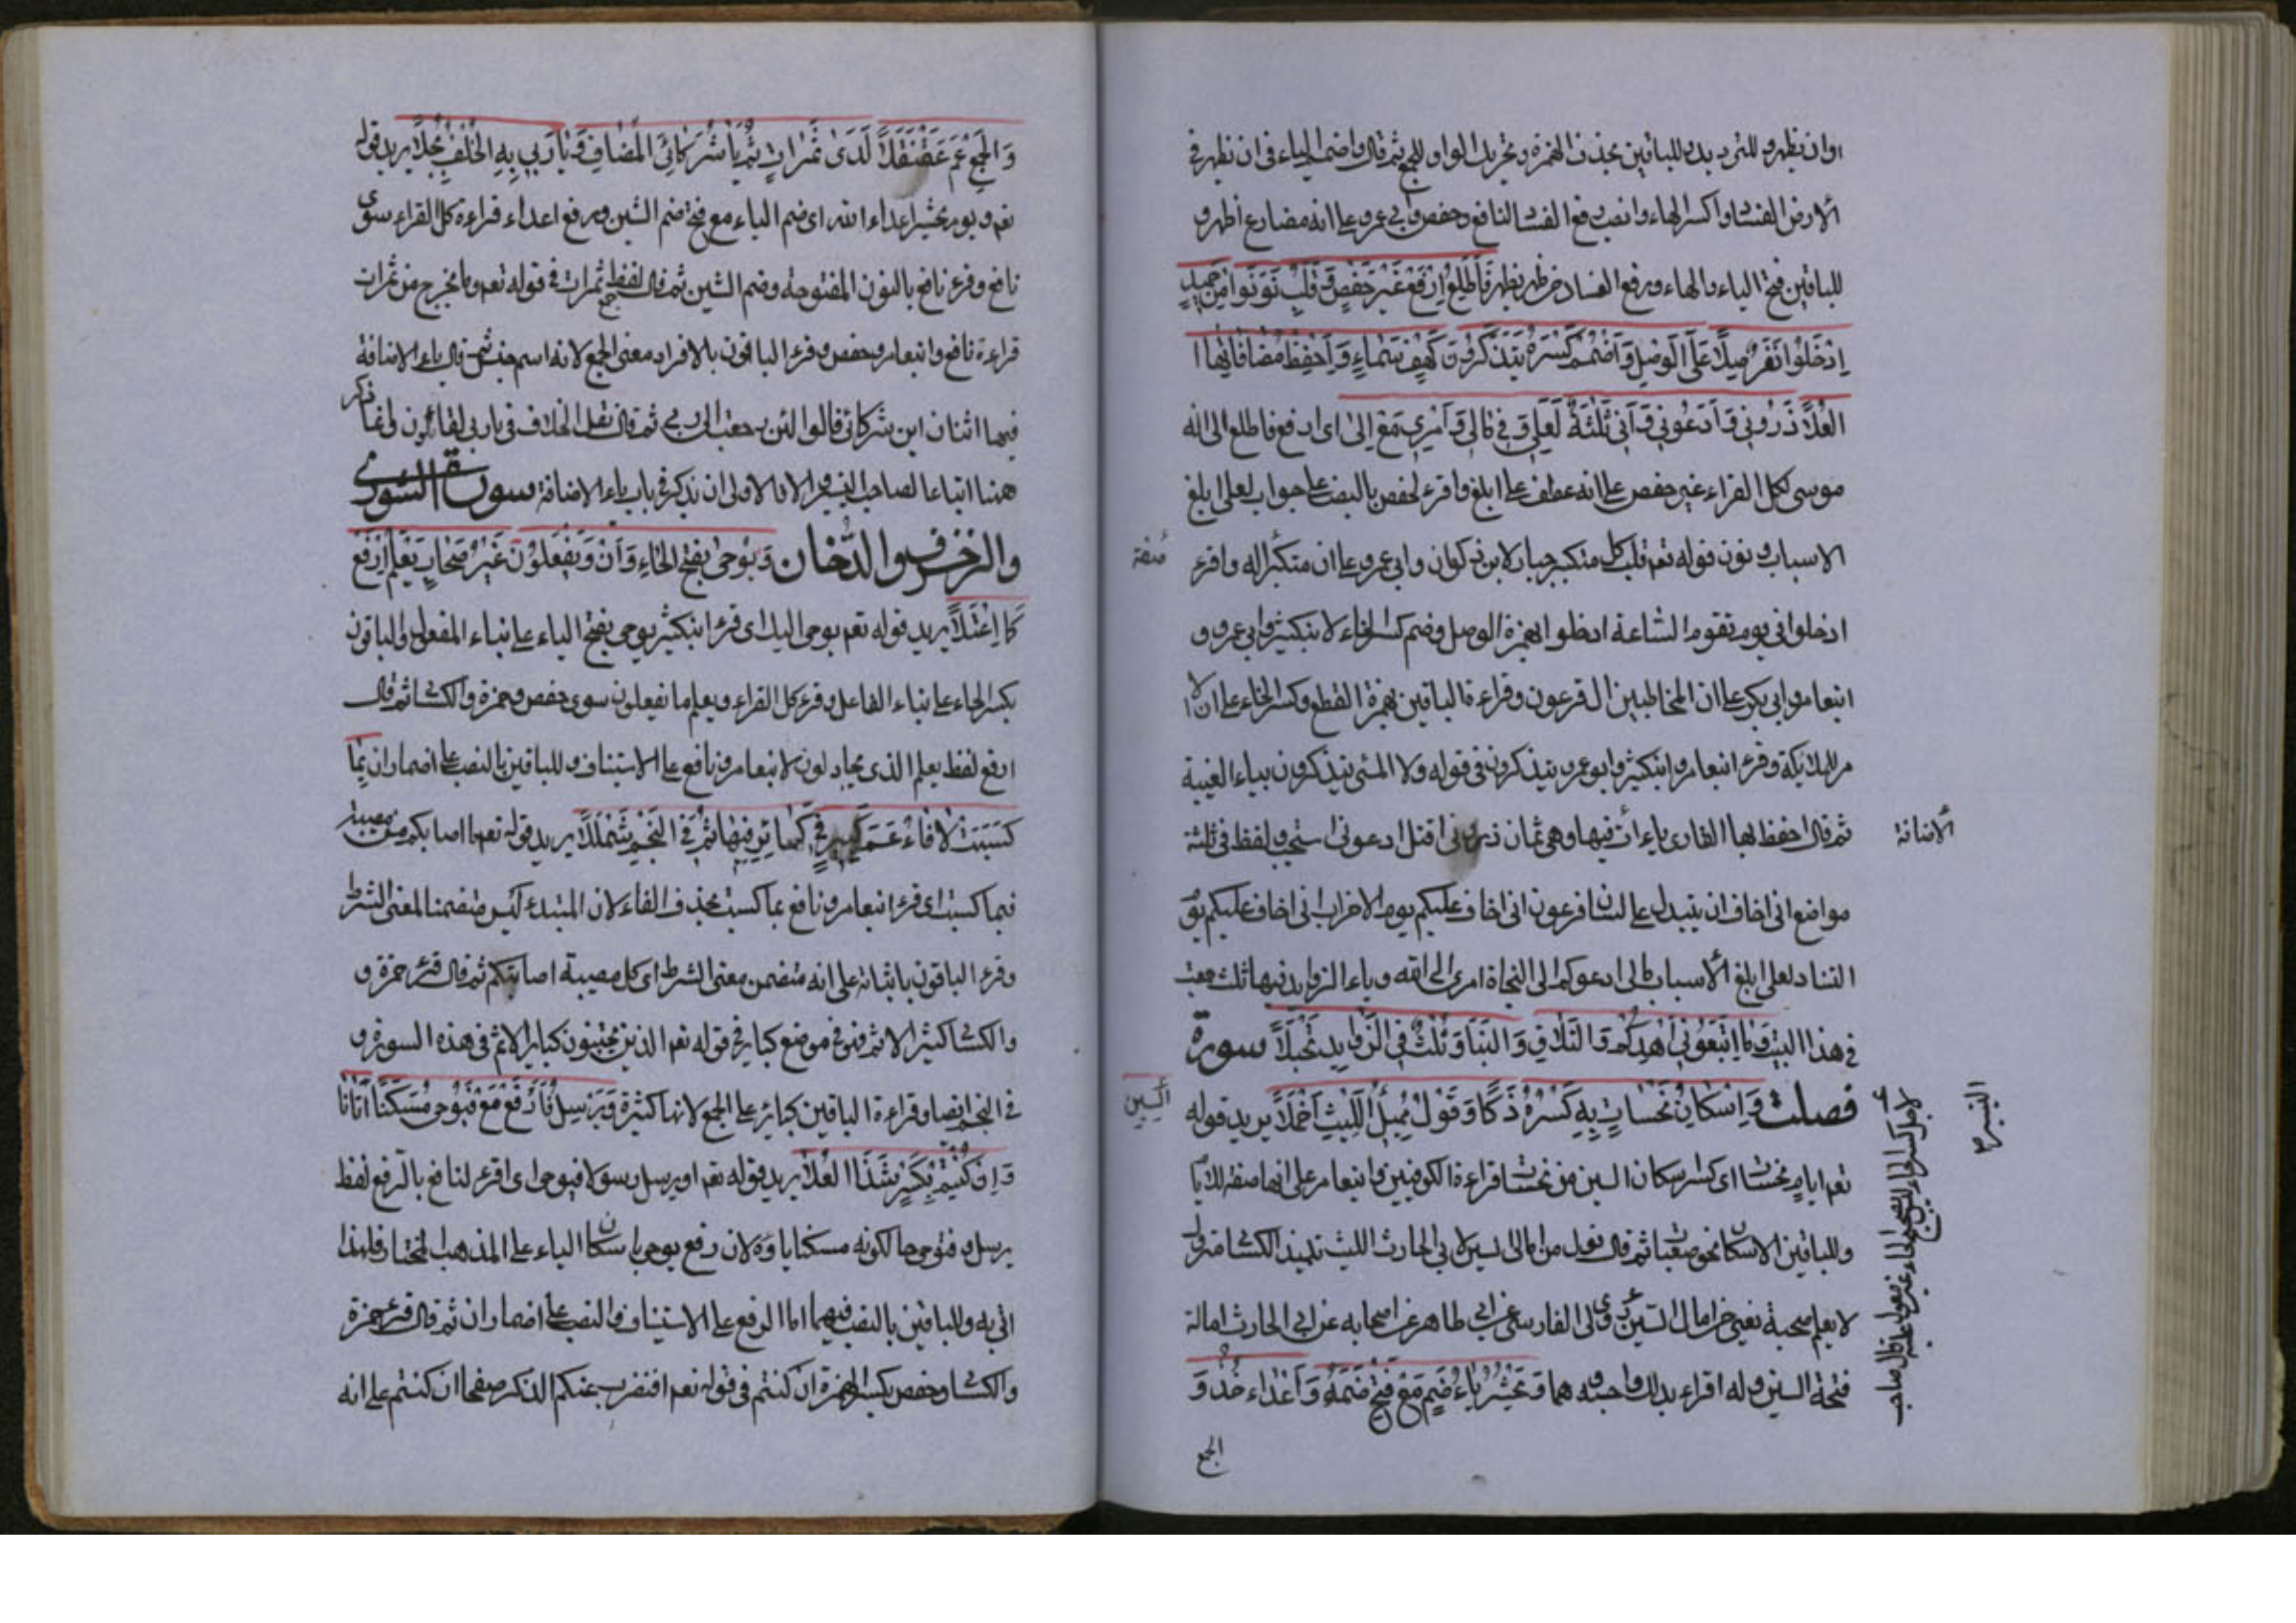 وان يظهر للباقين بحذف الهمزة وتحريك الواو للجمع ثم قال واضمم الياء في ان يظهر في
الارض الفساد واكسر الهاء وانصب رفع الفساد لنافع وحفص وابي عمرو على انه مضارع اظهر و
للباقين فتح الياء والهاء ورفع الفساد من ظهر يظهر فَاَطَّلِعَ اِرْفَعْ غَيْرَ حَفْصٍ وَقَلْبِ نَوِّنُوا مِنْ حَمِيدٍ
اِدْخُلُوا نَفَرٌ صِلاً عَلَى الْوَصْلِ وَاضْمُمْ كَسْرَهُ يَتَذَكَّرُونَ كَهْفٌ سَمَاءٍ وَاحْفَظْ مُضَافَاتِهَا ا
الْعُلاَ ذَرُونِي وَادْعُونِي وَاِنِّي ثَلٰثَةٌ لَعَلِّي وَفِي مَالِي وَاَمْرِي مَعْ اِلٰى اى ارفع فاطلع الى اله
موسى لكل القراء غير حفص على انه عطف على ابلغ واقرء لحفص بالنصب على جواب لعلي ابلغ
الاسباب ونون قوله تعم قلب كل متكبر جبار لابن ذكوان وابي عمرو على ان متكبر له واقرء
صفة
ادخلوا في يوم تقوم الساعة ادخلوا بهمزة الوصل وضم كسر الخاء لابنكثير وابي عمرو و
ابنعامر وابي بكر على ان المخاطبين ال فرعون وقراءة الباقين بهمزة القطع وكسر الخاء على ان
الملائكة وقرء ابنعامر وابنكثير وابو عمرو يتذكرون في قوله ولا المسئ يتذكرون بياء الغيبة
ثم قال احفظ ايها القارى ياءات فيها وهي ثمان ذروني اقتل ادعوني استجب لفظ في ثلثة
الاضافة
مواضع اني اخاف ان يتبدل على لسان فرعون اني اخاف عليكم يوم الاحزاب اني اخاف عليكم يوم
التناد لعلي ابلغ الاسباب مالي ادعوكم الى النجاة امرى الى الله وياء الزوايد فيها ثلث جمعت
في هذا البيت وَمَا اتَّبِعُونِي اَهْدِكُمْ وَالتَّلاَقِ وَالتَّنَادِ ثَلٰثٌ فِي الزَّوَايِدِ تُجْتَلاَ سورة
فصلت وَاِسْكَانُ نَحْسَاتٍ بِهِ كَسْرُهُ ذَكَا وَقَوْلُ مُمِيلٍ لِلَّيْثِ اُخْمِلاَ يريد قوله
السين
تعم ايام نحسات اى كسر اسكان السين من نحسات قراءة الكوفيين وابنعامر على انها صفة لايام
وللباقين الاسكان نحو صعبات ثم قال نقل من امالى السين لابي الحارث الليث تلميذ الكسائي متروك
لا يعلم صحته يعني من امال السين روى الفارسي عن ابي طاهر عن اصحابه عن ابي الحارث امالة
فتحة السين وله اقراء بذلك واحبه هما وَنَحْشُرُ يَاءٌ ضُمَّ مَعْ فَتْحِ ضَمِّهِ وَاَعْدَاءُ خُذْ وَ
الجمع
التيسير
وَالْجَمْعُ عَمَّ عَقَنْقَلاَ لَدَى ثَمَرَاتٍ ثُمَّ يَا شُرَكَائِيَ الْمُضَافُ وَيَا رَبِّي بِهِ الْخُلْفُ بُجِّلاَ يريد قوله
تعم ويوم يحشر اعداء الله اى ضم الياء مع فتح ضم الشين ورفع اعداء قراءة كل القراء سوى
نافع وقرء نافع بالنون المفتوحة وضم الشين ثم قال لفظ ثمرات في قوله تعم وما تخرج من ثمرات
جمع
قراءة نافع وابنعامر وحفص وقرء الباقون بالافراد معنى الجمع لانه اسم جنس ثم قال ياء الاضافة
فيها اثنان اين شركائي قالوا لئن رجعت الى ربي ثم قال نقل الخلاف في يا ربي لقالون انما ذكر
ههنا اتباعا لصاحب التيسير والا فالاولى ان يذكر في باب ياء الاضافة سورة الشورى
والزخرف والدخان وَيُوحَى بِفَتْحِ الْحَاءِ دَانَ وَيَفْعَلُونَ غَيْرُ صِحَابٍ يَعْلَمَ اِرْفَعْ
كَمَا اعْتَلاَ يريد قوله تعم يوحى اليك اى قرء ابنكثير يوحى بفتح الياء على بناء المفعول والباقون
بكسر الحاء على بناء الفاعل وقرء كل القراء ويعلم ما تفعلون سوى حفص وحمزة والكسائي ثم قال
ارفع لفظ يعلم الذى يجادلون لابنعامر ونافع على الاستيناف وللباقين بالنصب على اضمار ان بِمَا
كَسَبَتْ لاَ فَاءَ عَمَّ كَبِيرَ فِي كَبَائِرَ فِيهَا ثُمَّ فِي النَّجْمِ شَمْلَلاَ يريد قوله تعم ما اصابكم من مصيبة
فبما كسبت اى قرء ابنعامر ونافع بما كسبت بحذف الفاء لان المبتدء ليس متضمنا لمعنى الشرط
وقرء الباقون باثباته على انه متضمن معنى الشرط اى كل مصيبة اصابتكم ثم قال قرء حمزة و
والكسائي كبير الاثم في موضع كبائر في قوله تعم الذين يجتنبون كبائر الاثم في هذه السورة و
في النجم ايضا وقراءة الباقين كبائر على الجمع لانها كثيرة وَيُرْسِلَ فَارْفَعْ مَعْ فَيُوحِي مُسَكَّنًا اَتَانَا
وَاِنْ كُنْتُمْ بِكَسْرٍ شَذَا الْعُلاَ يريد قوله تعم او يرسل رسولا فيوحى اى اقرء لنافع بالرفع لفظ
يرسل وفيوحى حالكونه مسكنا ياؤه لان رفع يوحى باسكان الياء على المذهب المختار فلهذا
اتى به وللباقين بالنصب فيهما اما الرفع على الاستيناف والنصب على اضمار ان ثم قال قرء حمزة
والكسائي وحفص بكسر الهمزة ان كنتم في قوله تعم افنضرب عنكم الذكر صفحا ان كنتم على انه